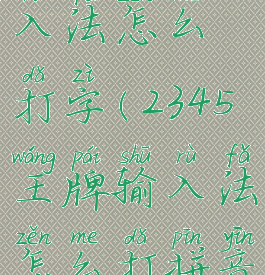 入法怎么
dǎ zì
打字(2345
wáng pái shū rù fǎ
王牌输入法
zěn me dǎ pīn yīn
怎么打拼音